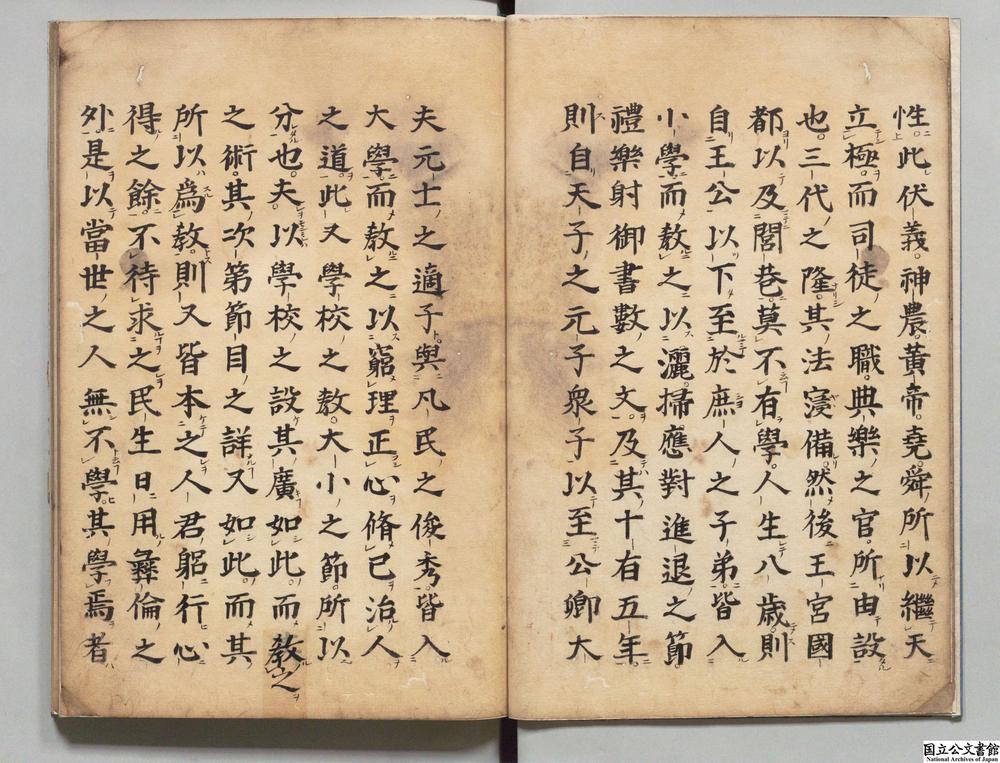 性此伏義神農黃帝堯舜所以繼天
立極而司徒之職典樂之官所由設
也三代之隆其法寖備然後王宮國
都以及閭巷莫不有學人生八歲則
自王公以下至於庶人之子弟皆入
小學而教之以灑掃應對進退之節
禮樂射御書數之文及其十有五年
則自天子之元子衆子以至公卿大
夫元士之適子與凡民之俊秀皆入
大學而教之以窮理正心脩己治人
之道此又學校之教大小之節所以
分也夫以學校之設其廣如此而教之
之術其次第節目之詳又如此而其
所以爲教則又皆本之人君躬行心
得之餘不待求之民生日用彝倫之
外是以當世之人無不學其學焉者
国立公文書館
National Archives of Japan